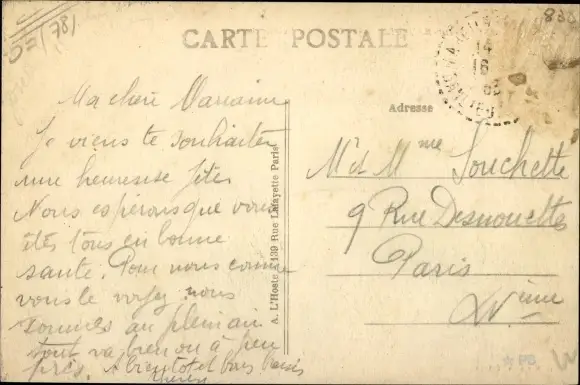 5= (78)
838
CARTE POSTALE
Adresse
Ma chère Marraine
Je viens te souhaiter
une heureuse fête.
Nous espérons que vous
êtes tous en bonne
santé. Pour nous comme
vous le voyez nous
sommes au plein air
tout va bien ou à peu
près. A bientôt et bons baisers
A. L'Hoste, 139 Rue Lafayette Paris
Mr et Mme Souchette
9 Rue Desnouettes
Paris
XVème
PB